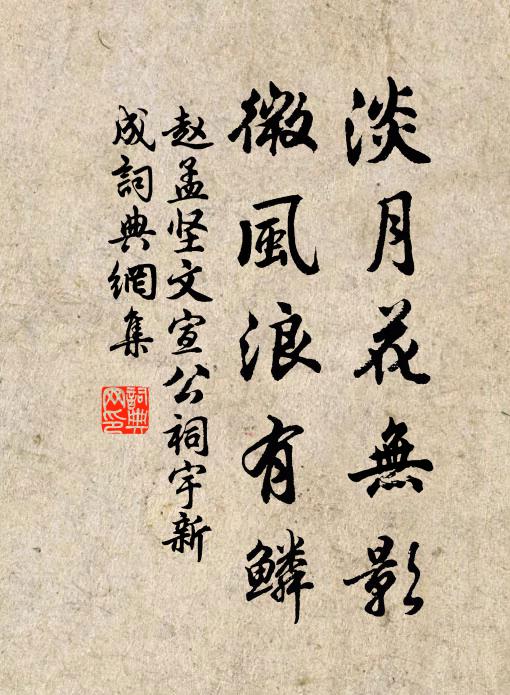 淡月花無影
微風浪有鱗
赵孟坚文宣公祠宇新
成詞典網集
詞典
网印